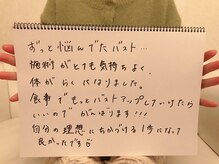 ずっと悩んでたバスト…
施術がとても気持ちよく、
体がらくになりました。
食事でもっとバストアップしていけたら
いいのでがんばります!!!
自分の理想に近づける1歩になって
良かったです